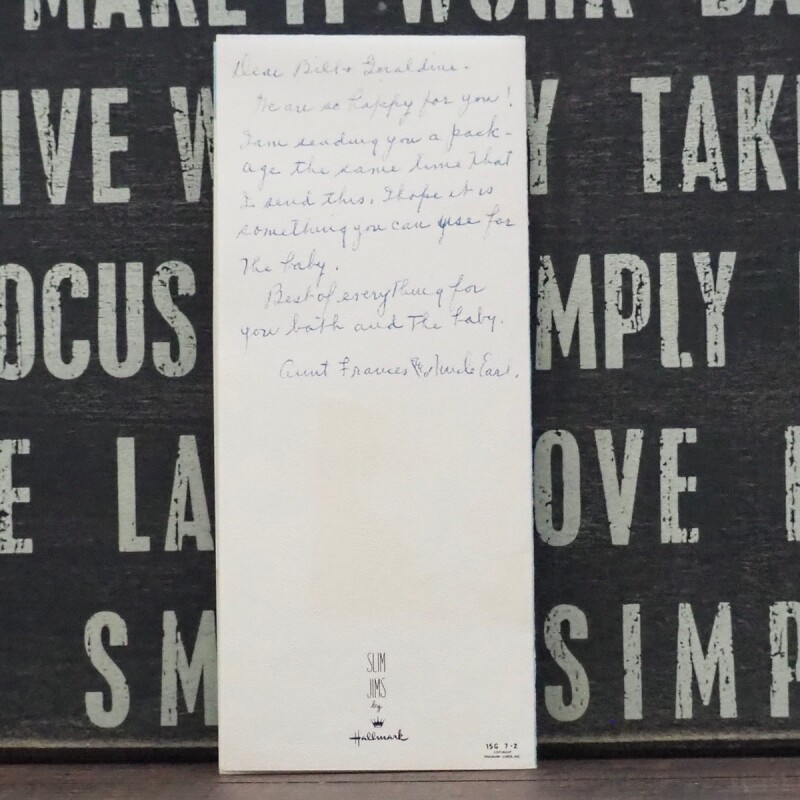 MAKE IT WORK
IVE W
Y TAK
OCUS
MPLY
E LA
OVE
SM
SIMP
Dear Bill & Geraldine -
We are so happy for you!
I am sending you a pack-
age the same time that
I send this. I hope it is
something you can use for
the baby.
Best of everything for
you both and the baby.
Aunt Frances & Uncle Earl.
SLIM
JIMS
by
Hallmark
15G 7-2
COPYRIGHT
HALLMARK CARDS, INC.